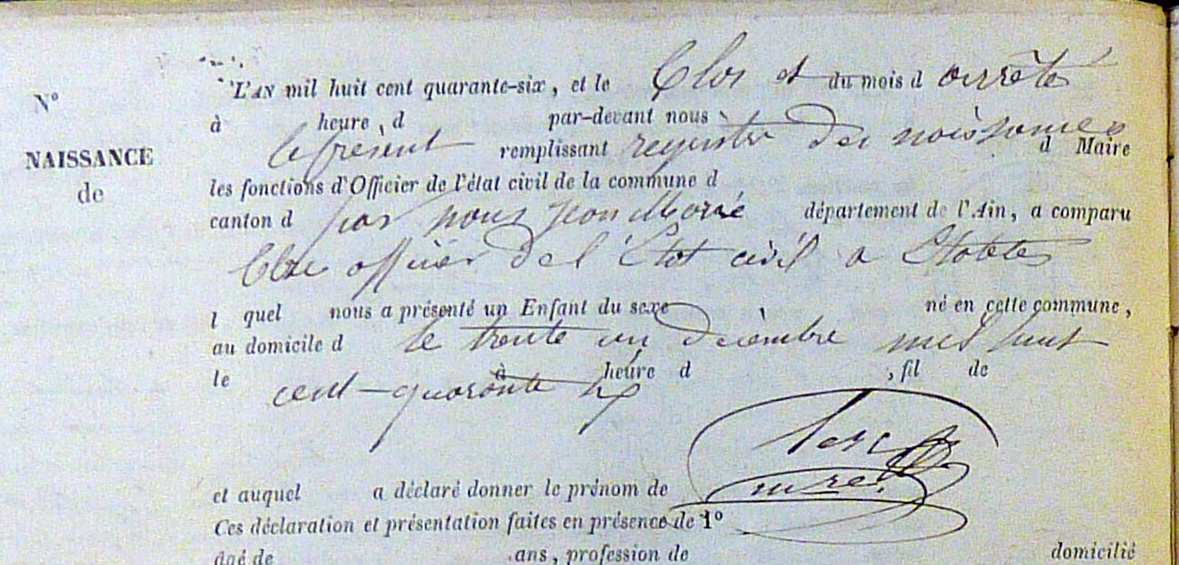 L'AN mil huit cent quarante-six, et le Clos et du mois d arrêté
N°
à heure, d par-devant nous
le présent remplissant registre des naissances d Maire
NAISSANCE
les fonctions d'Officier de l'état civil de la commune d
de
canton d par nous Jean Marie département de l'Ain, a comparu
officier de l'État civil a
l quel nous a présenté un Enfant du sexe né en cette commune,
au domicile d le trente un décembre mil huit
le cent-quarante six à heure d , fil de
et auquel a déclaré donner le prénom de
mre
Ces déclaration et présentation faites en présence de 1°
âgé de ans, profession de domicilié